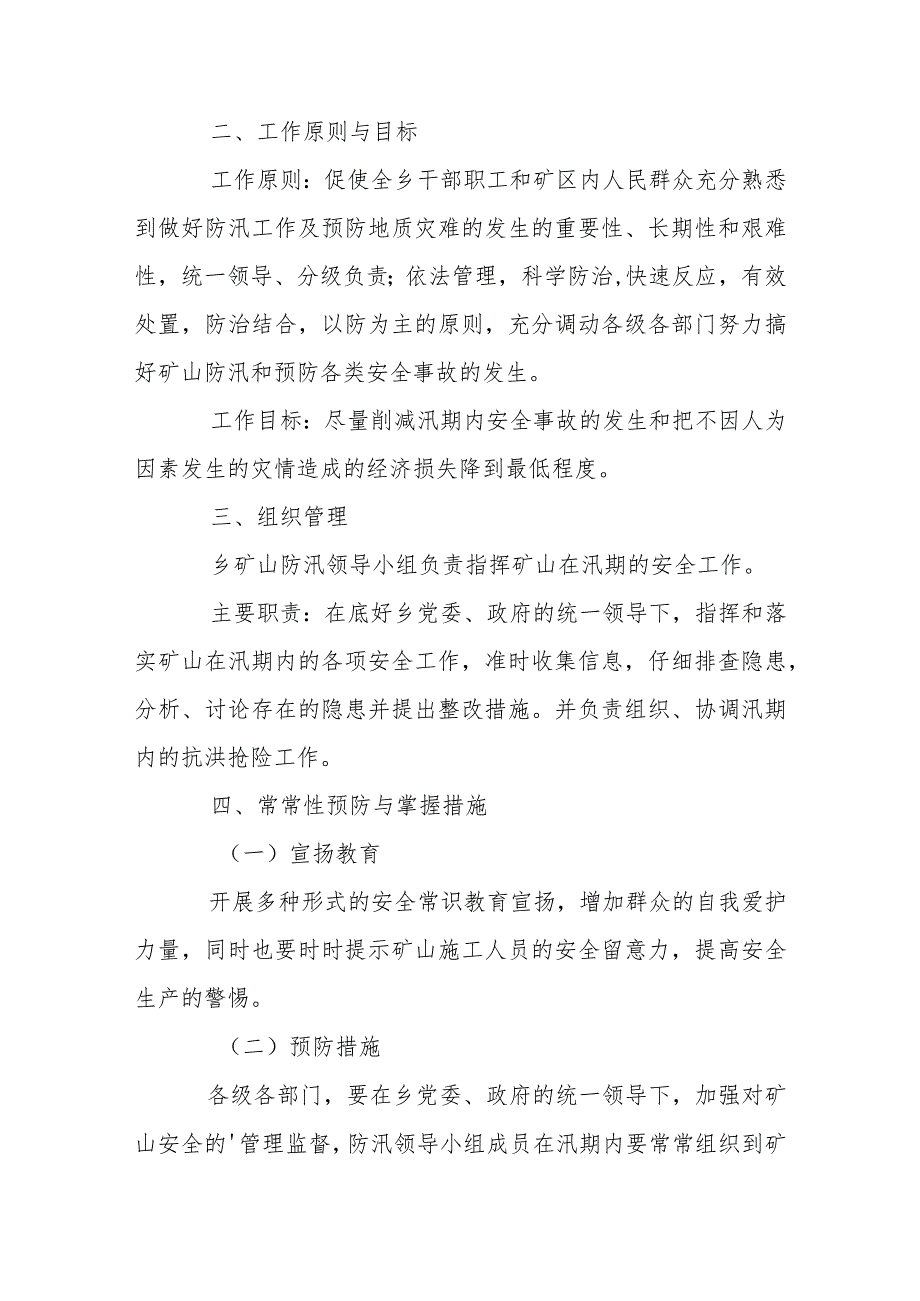 二、工作原则与目标
工作原则：促使全乡干部职工和矿区内人民群众充分熟悉
到做好防汛工作及预防地质灾难的发生的重要性、长期性和艰难
性，统一领导、分级负责；依法管理，科学防治,快速反应，有效
处置，防治结合，以防为主的原则，充分调动各级各部门努力搞
好矿山防汛和预防各类安全事故的发生。
工作目标：尽量削减汛期内安全事故的发生和把不因人为
因素发生的灾情造成的经济损失降到最低程度。
三、组织管理
乡矿山防汛领导小组负责指挥矿山在汛期的安全工作。
主要职责：在底好乡党委、政府的统一领导下，指挥和落
实矿山在汛期内的各项安全工作，准时收集信息，仔细排查隐患，
分析、讨论存在的隐患并提出整改措施。并负责组织、协调汛期
内的抗洪抢险工作。
四、常常性预防与掌握措施
（一）宣扬教育
开展多种形式的安全常识教育宣扬，增加群众的自我爱护
力量，同时也要时时提示矿山施工人员的安全留意力，提高安全
生产的警惕。
（二）预防措施
各级各部门，要在乡党委、政府的统一领导下，加强对矿
山安全的'管理监督,防汛领导小组成员在汛期内要常常组织到矿